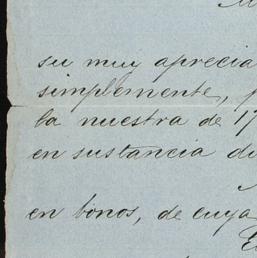 su muy aprecia
simplemente, p
la nuestra de 17
en sustancia di
en bonos, de cuya